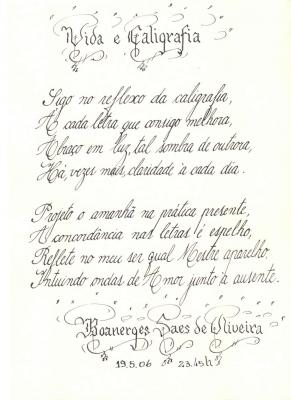 Vida e Caligrafia
Sigo no reflexo da caligrafia,
A cada letra que consigo melhora,
Abraço em luz, tal sombra de outrora,
Há, vezes mais, claridade à cada dia.
Projeto o amanhã na prática presente,
A concordância nas letras é espelho,
Reflete no meu ser qual Mestre aparelho.
Intuindo ondas de Amor junto à ausente.
Boanerges Saes de Oliveira
19.5.06 23.45h